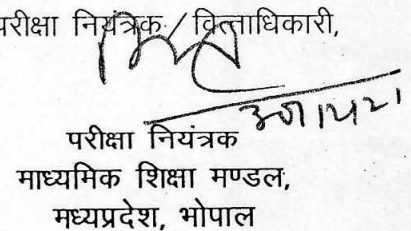 परीक्षा नियंत्रक / वित्ताधिकारी,
परीक्षा नियंत्रक
माध्यमिक शिक्षा मण्डल,
मध्यप्रदेश, भोपाल